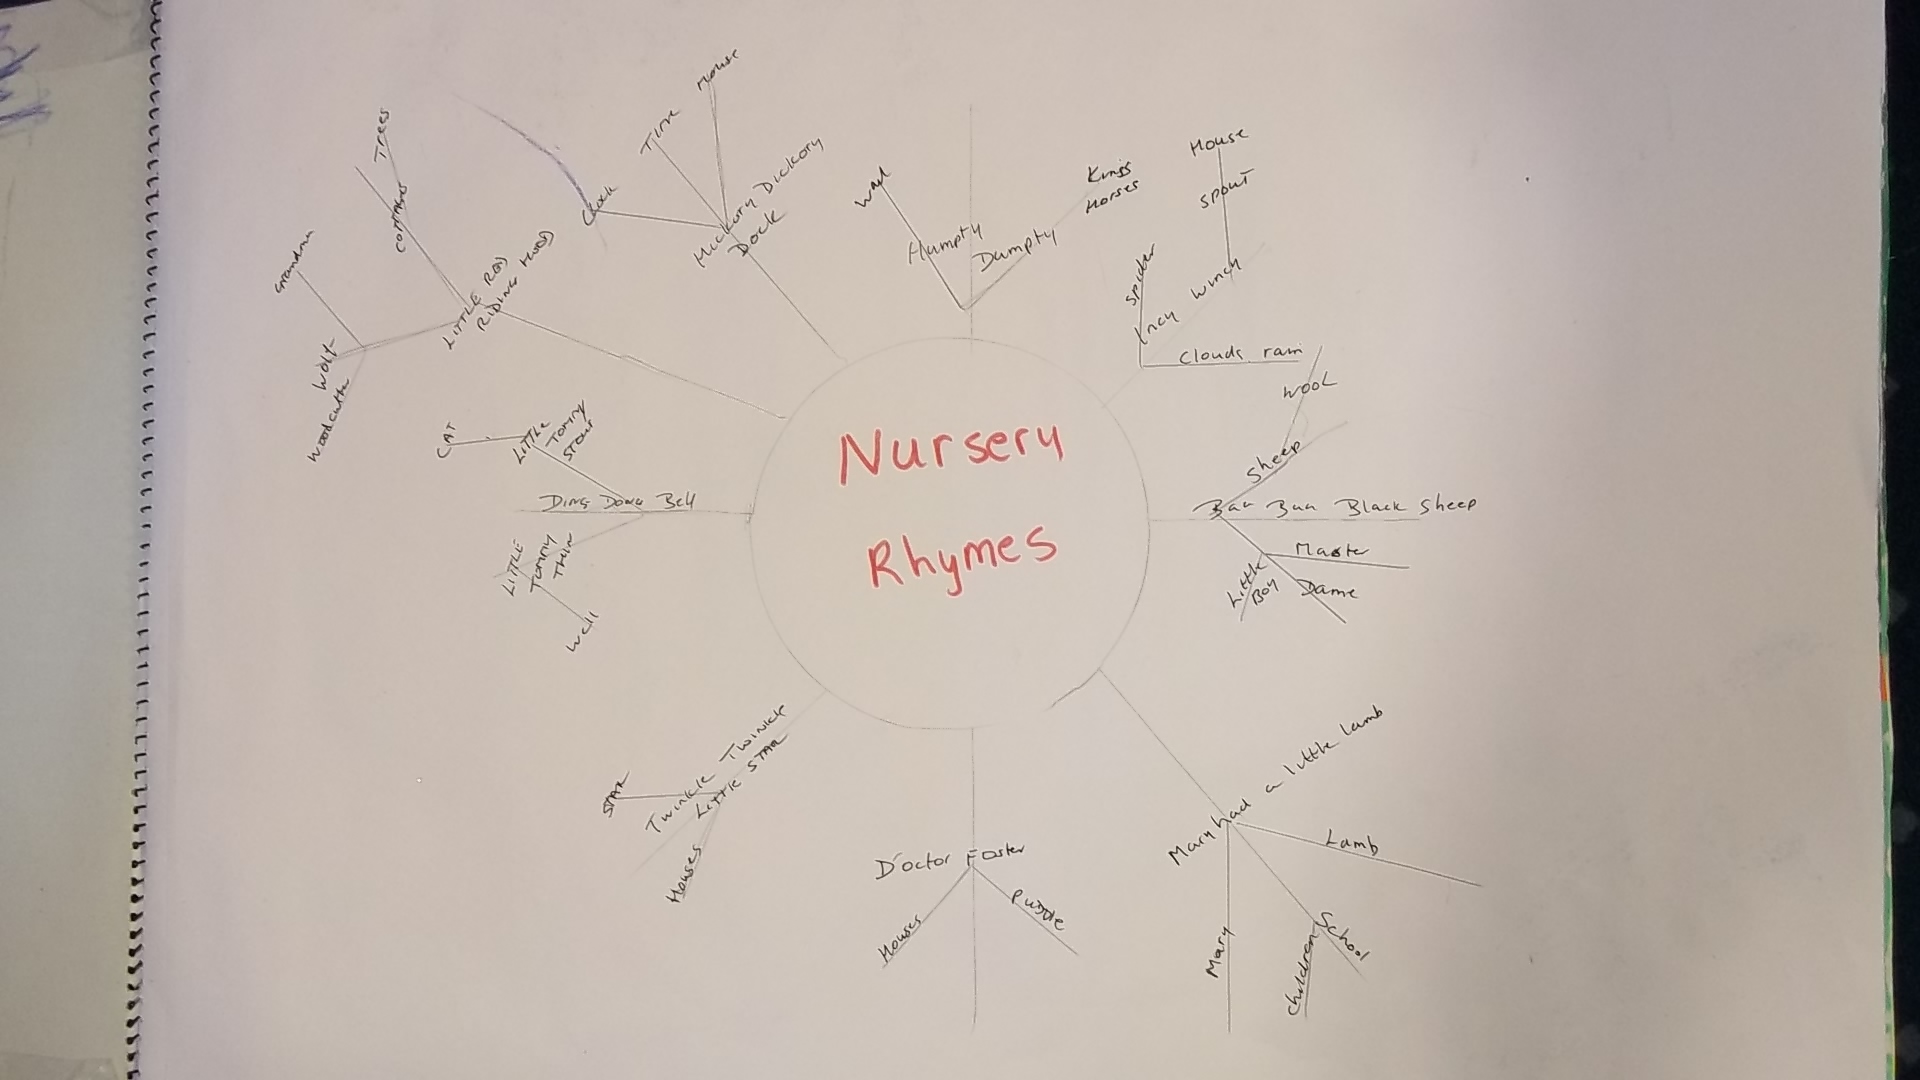 Nursery
Rhymes
Humpty
Dumpty
Wall
King's
Horses
Incy Wincy
Spider
Spout
House
Clouds rain
Baa Baa Black Sheep
Sheep
Wool
Master
Dame
Little
Boy
Mary had a little lamb
Lamb
School
Children
Mary
Doctor Foster
Puddle
Houses
Twinkle Twinkle
Little STAR
STAR
Houses
Ding Dong Bell
LITTLE
TOMMY
THIN
Well
LITTLE
TOMMY
STOUT
CAT
LITTLE RED
RIDING HOOD
Wolf
Woodcutter
Grandma
COTTAGES
Trees
Hickory Dickory
Dock
Clock
Time
Mouse